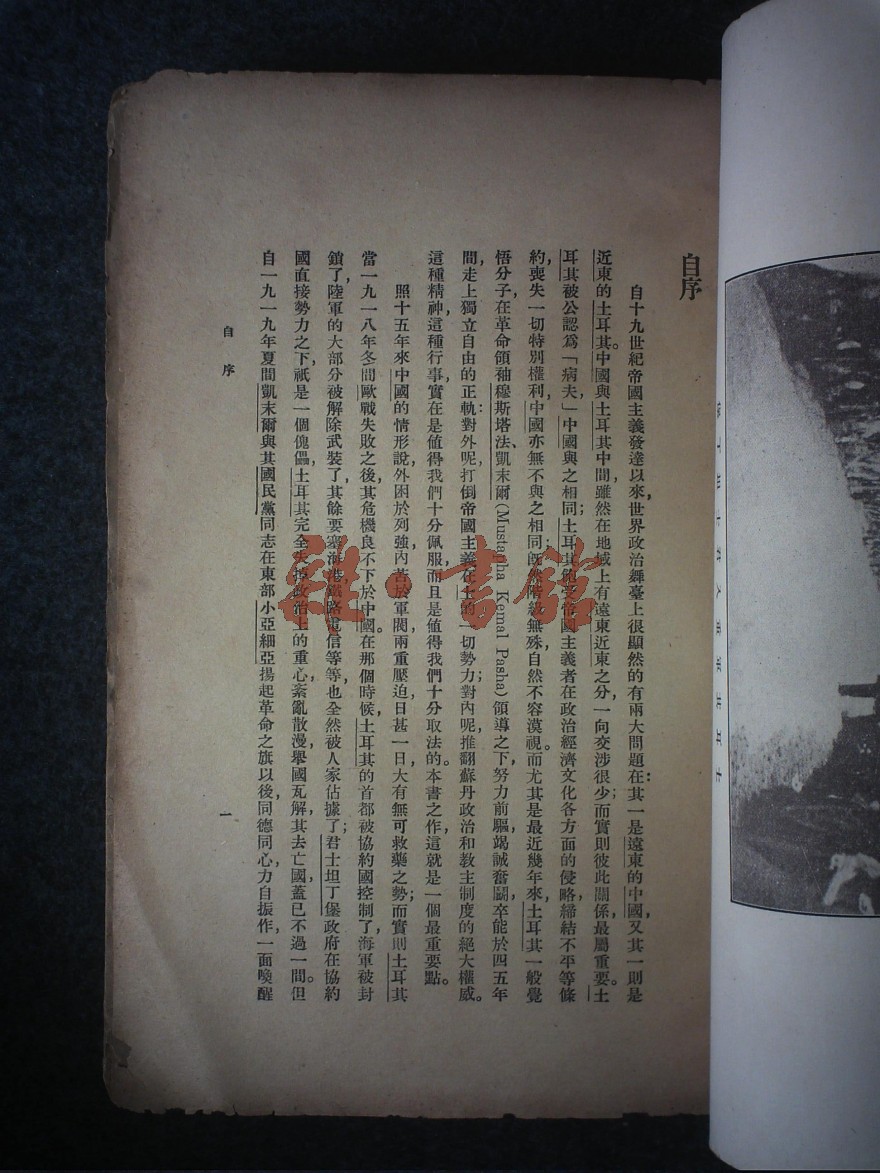 自序
自十九世紀帝國主義發達以來,世界政治舞臺上很顯然的有兩大問題在:其一是遠東的中國,又其一則是
近東的土耳其。中國與土耳其中間,雖然在地域上有遠東近東之分,一向交涉很少;而實則彼此關係,最屬重要。土
耳其被公認爲「病夫」,中國與之相同;土耳其飽受帝國主義者在政治經濟文化各方面的侵略,締結不平等條
約,喪失一切特別權利,中國亦無不與之相同;既然階級無殊,自然不容漠視。而尤其是最近幾年來,土耳其一般覺
悟分子,在革命領袖穆斯塔法、凱末爾(Mustapha Kemal Pasha)領導之下,努力前驅,竭誠奮鬭,卒能於四五年
間,走上獨立自由的正軌:對外呢,打倒帝國主義在土的一切勢力;對內呢,推翻蘇丹政治和教主制度的絕大權威。
這種精神,這種行事,實在是値得我們十分佩服,而且是値得我們十分取法的。本書之作,這就是一個最重要點。
照十五年來中國的情形說,外困於列強,內苦於軍閥,兩重壓迫,日甚一日,大有無可救藥之勢;而實則土耳其
當一九一八年冬間歐戰失敗之後,其危機良不下於中國。在那個時候,土耳其的首都被協約國控制了,海軍被封
鎖了,陸軍的大部分被解除武裝了,其餘要塞海港鐵路電信等等,也全然被人家佔據了;君士坦丁堡政府在協約
國直接勢力之下,祇是一個傀儡,土耳其完全失掉政治上的重心,紊亂散漫,舉國瓦解,其去亡國,蓋已不過一間。但
自一九一九年夏間凱末爾與其國民黨同志在東部小亞細亞揚起革命之旗以後,同德同心,力自振作,一面喚醒
自序
一
雜·書館